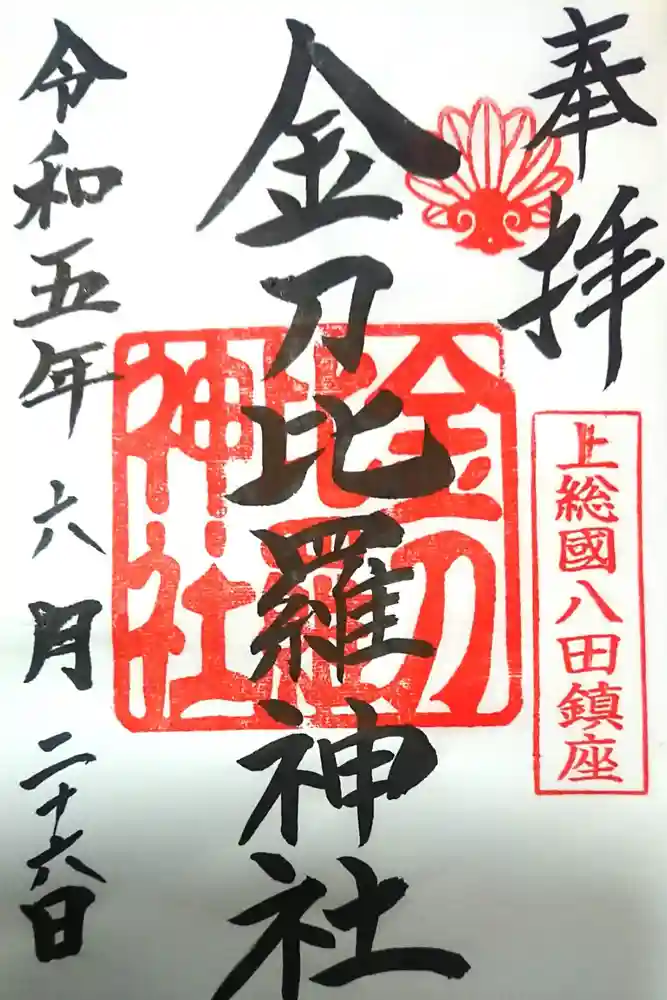 奉拝
上総國八田鎮座
金刀比羅神社
金刀比羅神社
令和五年六月二十六日